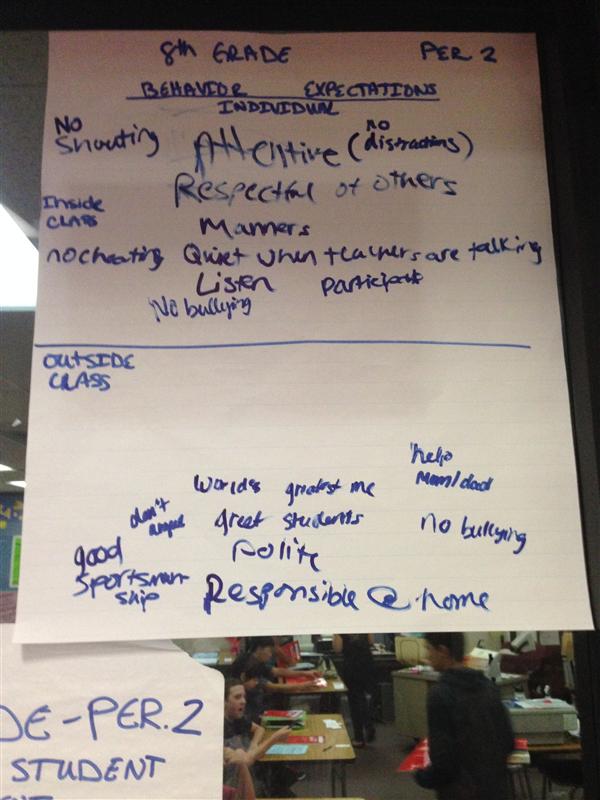 8th GRADE PER 2
BEHAVIOR EXPECTATIONS
INDIVIDUAL
NO Shouting
Attentive (no distractions)
Respectful of others
Inside CLASS
Manners
no cheating Quiet when teachers are talking
Listen Participate
No bullying
OUTSIDE
CLASS
help
Mom/dad
Worlds greatest me
don't argue
great students
no bullying
good
Sportsman
ship
Polite
Responsible @ home
DE-PER.2
STUDENT